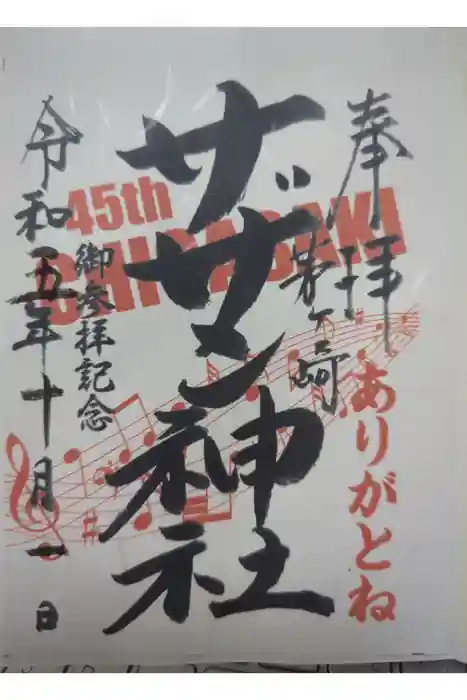 奉拝
茅ヶ崎
ザザン神社
御参拝記念
令和五年十月一日
45th
CHIGASAKI
ありがとね